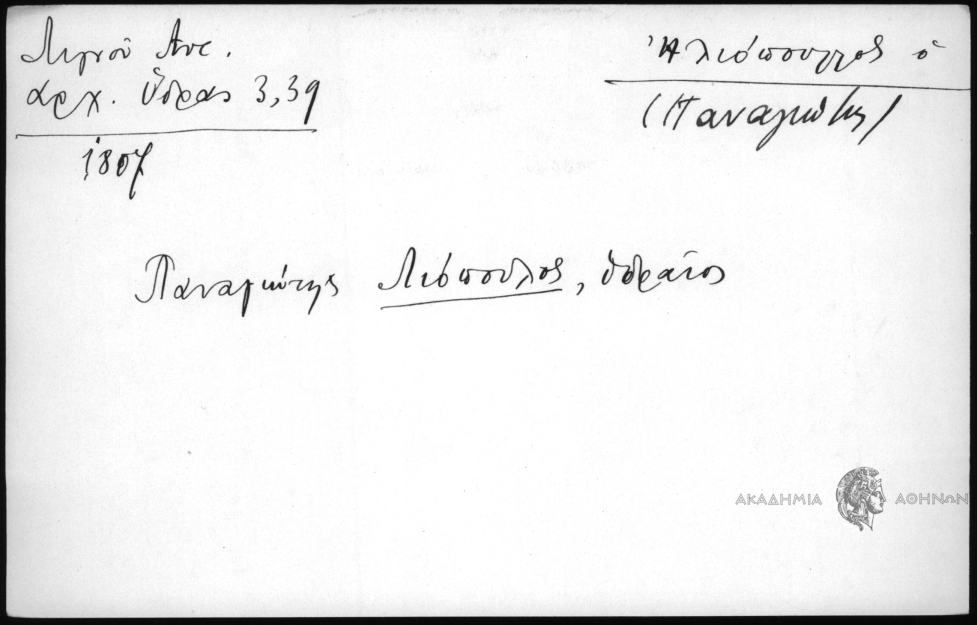 Λιγνοῦ Ἀντ.
ἀρχ. Ὕδρας 3,39
1807
Ἡλιόπουλος ὁ
(Παναγιώτης)
Παναγιώτης Λιόπουλος, ὑδραῖος
ΑΚΑΔΗΜΙΑ ΑΘΗΝΩΝ